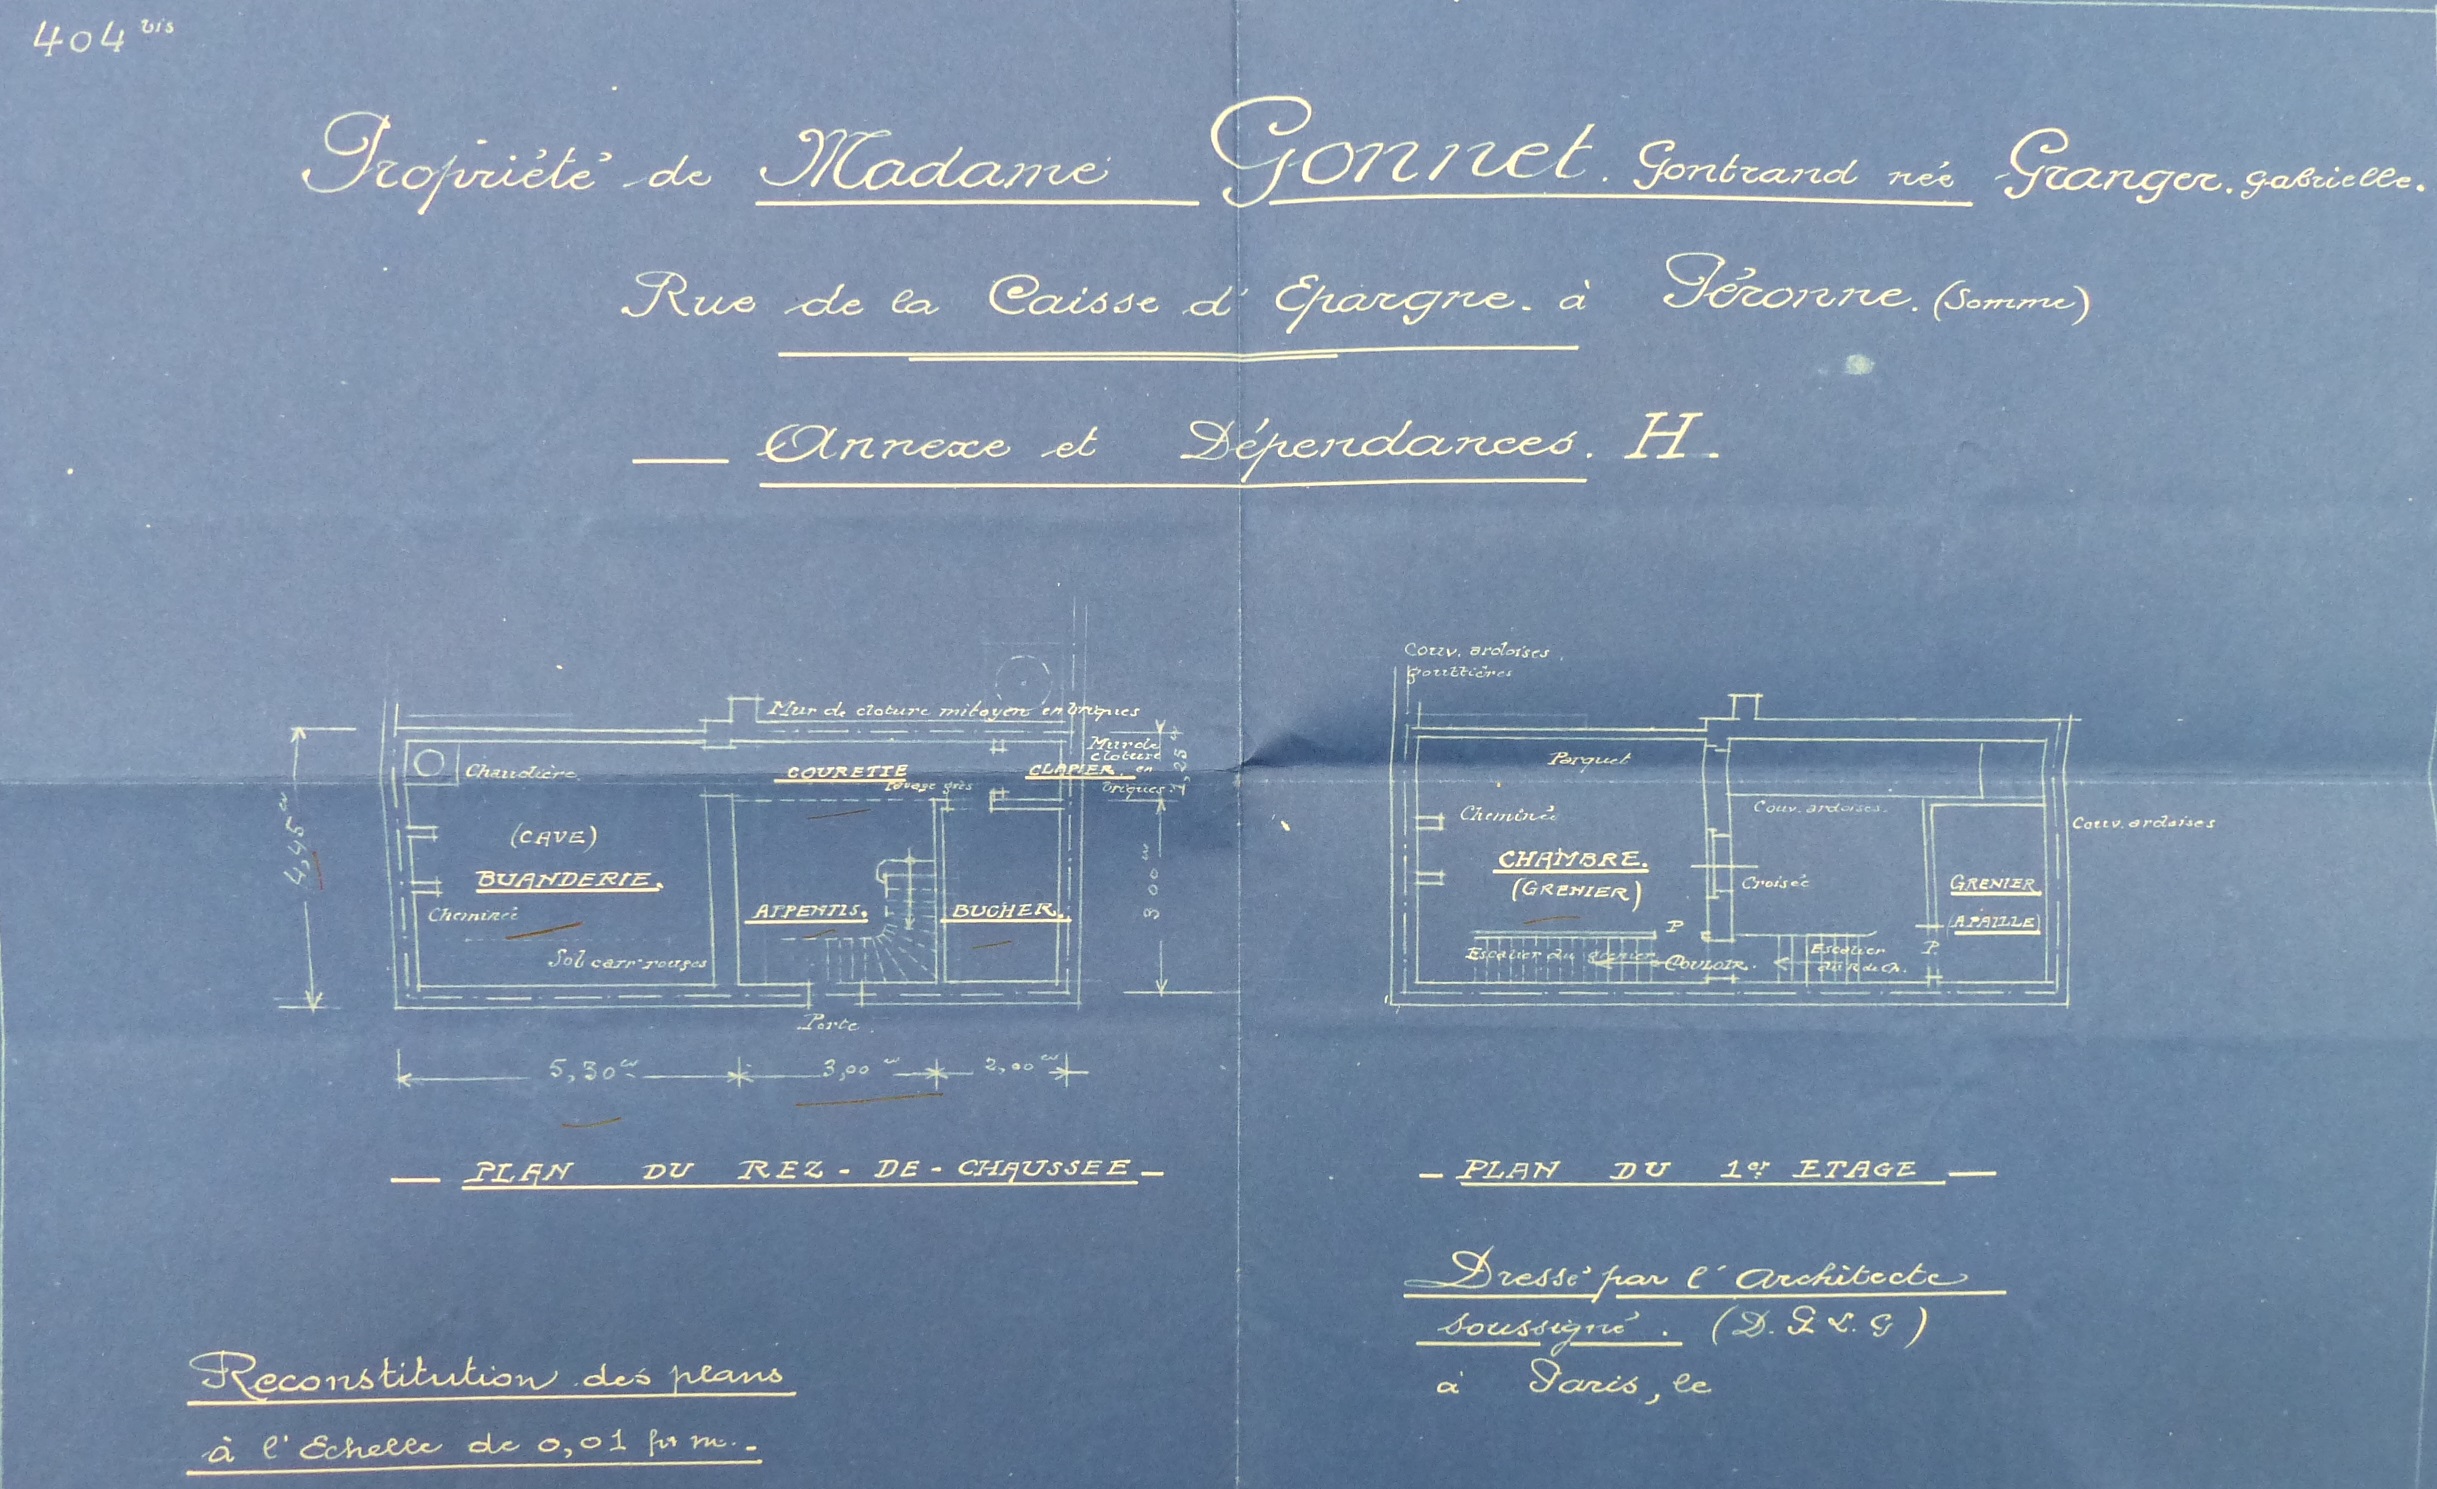 404 bis
Propriété de Madame Gonnet. Gontrand née Granger. Gabrielle.
Rue de la Caisse d'Epargne. à Péronne. (Somme)
Annexe et Dépendances. H.
Couv. ardoises.
gouttières
Mur de cloture mitoyen en briques
Mur de
cloture
en
briques
1,25 m
Chaudière
COURETTE
CLAPIER
Pavage grès
(CAVE)
BUANDERIE.
Cheminée
Sol carr. rouges
APPENTIS.
BUCHER.
4,45 m
3,00 m
Porte.
5,30 m
3,00 m
2,00 m
Parquet
Cheminée
Couv. ardoises.
Couv. ardoises
CHAMBRE.
(GRENIER)
Croisée
GRENIER
A PAILLE
P
Escalier du grenier
COULOIR.
Escalier
du R de Ch.
P.
PLAN DU REZ-DE-CHAUSSEE
PLAN DU 1er ETAGE
Dressé par l'Architecte
soussigné. (D. G L. G)
à Paris, le
Reconstitution des plans
à l'Echelle de 0,01 pr m.